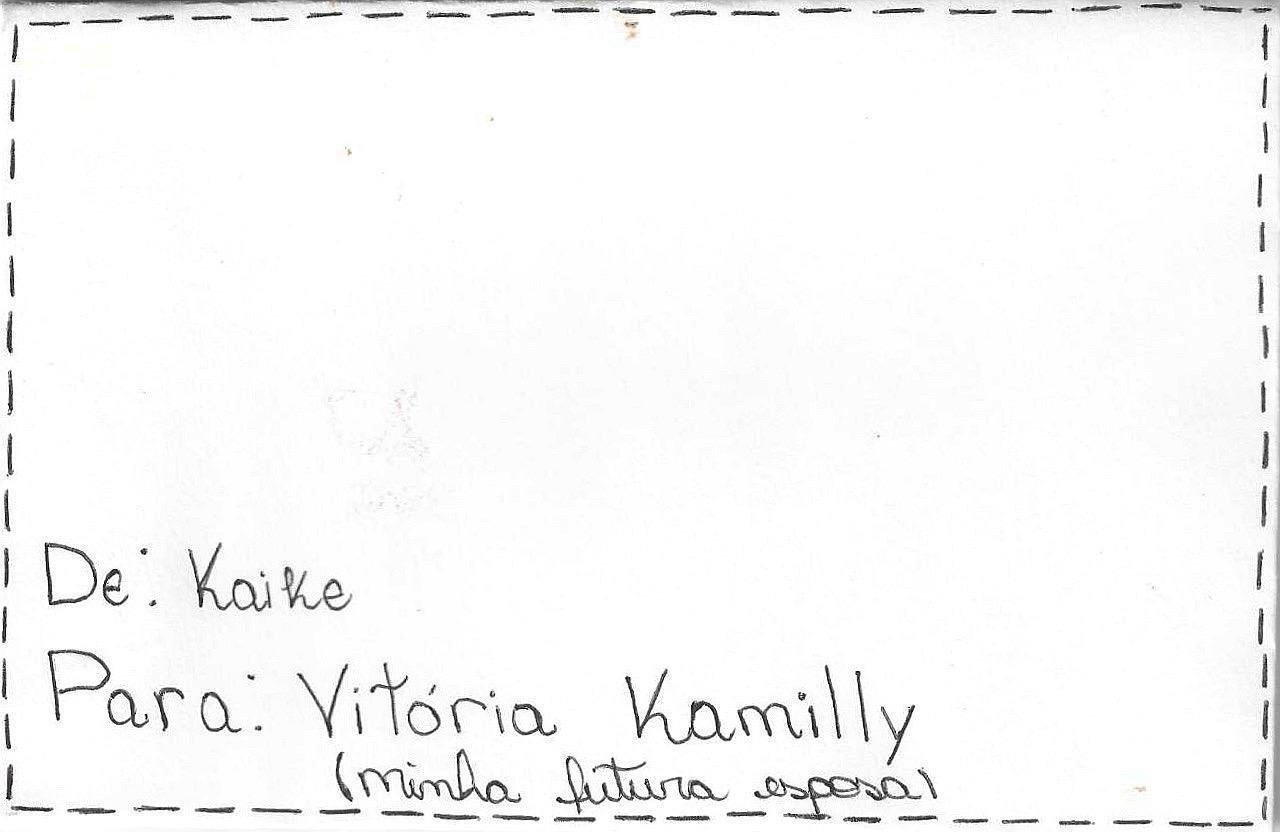 De: Kaike
Para: Vitória Kamilly
(minha futura esposa)